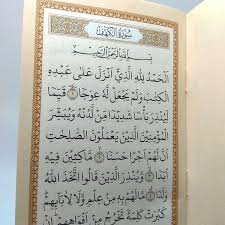 سُورَةُ الْكَهْفِ
بِسْمِ اللَّهِ الرَّحْمَٰنِ الرَّحِيمِ
الْحَمْدُ لِلَّهِ الَّذِي أَنْزَلَ عَلَىٰ عَبْدِهِ
الْكِتَٰبَ وَلَمْ يَجْعَلْ لَهُ عِوَجًا ۝ قَيِّمًا
لِيُنْذِرَ بَأْسًا شَدِيدًا مِنْ لَدُنْهُ وَيُبَشِّرَ
الْمُؤْمِنِينَ الَّذِينَ يَعْمَلُونَ الصَّٰلِحَٰتِ
أَنَّ لَهُمْ أَجْرًا حَسَنًا ۝ مَاكِثِينَ فِيهِ
أَبَدًا ۝ وَيُنْذِرَ الَّذِينَ قَالُوا اتَّخَذَ اللَّهُ
وَلَدًا ۝ مَا لَهُمْ بِهِ مِنْ عِلْمٍ وَلَا لِآبَائِهِمْ
كَبُرَتْ كَلِمَةً تَخْرُجُ مِنْ أَفْوَاهِهِمْ إِنْ